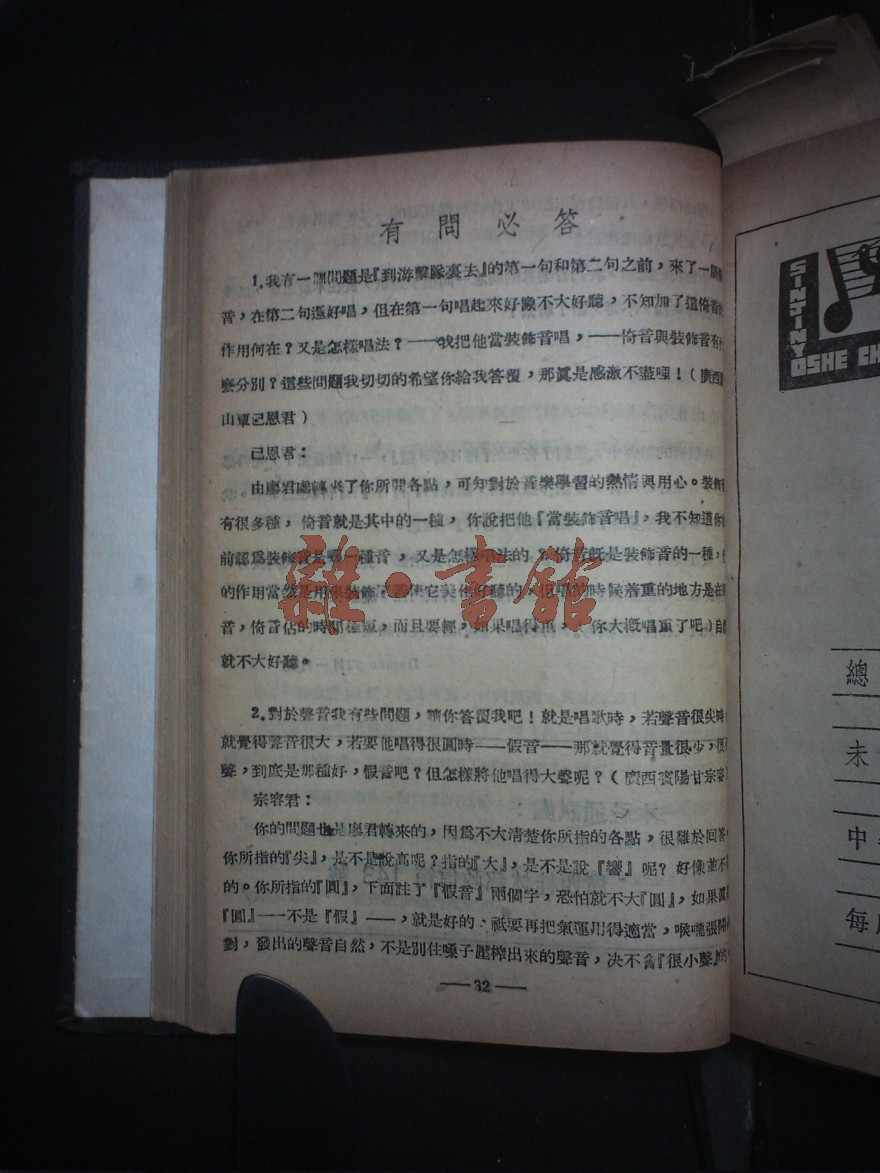 有問必答
1.我有一個問題是『到游擊隊裏去』的第一句和第二句之前，來了一個倚
音，在第二句還好唱，但在第一句唱起來好像不大好聽，不知加了這倚音的
作用何在？又是怎樣唱法？——我把他當裝飾音唱，——倚音與裝飾音有什
麽分別？這些問題我切切的希望你給我答覆，那眞是感激不盡哩！（廣西
山覃己恩君）
己恩君：
由廖君處轉來了你所問各點，可知對於音樂學習的熱情與用心。裝飾
有很多種，倚音就是其中的一種，你說把他『當裝飾音唱』，我不知道你
前認爲裝飾音是哪一種音，又是怎樣唱法的？倚音旣是裝飾音的一種，
的作用當然是用來裝飾本音使它美化好聽的，但唱的時候着重的地方是在
音，倚音佔的時間極短，而且要輕，如果唱得重，（你大抵唱重了吧）自
就不大好聽。
2.對於聲音我有些問題，請你答覆我吧！就是唱歌時，若聲音很尖時
就覺得聲音很大，若要他唱得很圓時——假音——那就覺得音量很少，很
聲，到底是那種好，假音吧？但怎樣將他唱得大聲呢？（廣西賓陽甘宗容
宗容君：
你的問題也是廖君轉來的，因爲不大清楚你所指的各點，很難於回答
你所指的『尖』，是不是說高呢？指的『大』，是不是說『響』呢？好像並不
的。你所指的『圓』，下面註了『假音』兩個字，恐怕就不大『圓』，如果眞
『圓』——不是『假』——，就是好的，祇要再把氣運用得適當，喉嚨張開
對，發出的聲音自然，不是別住嗓子壓榨出來的聲音，决不會『很小聲』的
——32——
雜·書館
SINTINY
OSHE CH
總
未
中
每